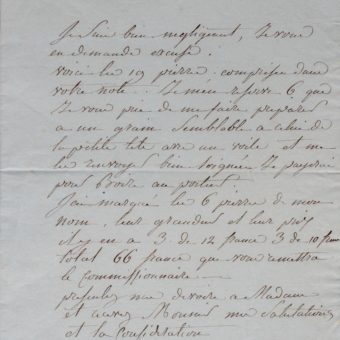 Je suis bien négligent, Je vous
en demande excuse.
voici les 19 pierre comprises dans
votre note. Je m'en reserve 6 que
Je vous prie de me faire preparer
a un grain semblable a celui de
la petite tete avec un voile et me
les envoyer bien soignée Je payerai
pour boire au portier.
J'ai marqué les 6 pierres de mon
nom, leur grandeur et leur prix
il y en a 3 de 12 francs 3 de 10 francs
total 66 francs que vous remettra
le Commissionnaire.
presentez mes devoirs a Madame
et a mes Salutations
et la Consideration